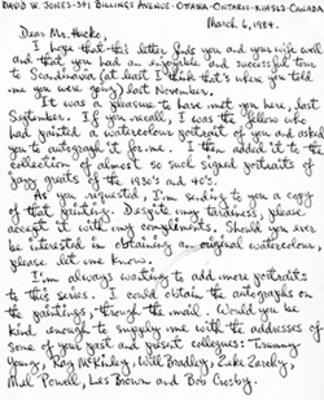 DAVID W. JONES·341 BILLINGS AVENUE·OTTAWA·ONTARIO·K1H5L3·CANADA
March 6, 1984.
Dear Mr. Hucko,
I hope that this letter finds you and your wife well
and that you had an enjoyable and successful tour
to Scandinavia (at least I think that's where you told
me you were going) last November.
It was a pleasure to have met you here, last
September. If you recall, I was the fellow who
had painted a watercolour portrait of you and asked
you to autograph it for me. I then added it to the
collection of almost 50 such signed portraits of
jazz greats of the 1930's and 40's.
As you requested, I'm sending to you a copy
of that painting. Despite my tardiness, please
accept it with my compliments. Should you ever
be interested in obtaining an original watercolour,
please let me know.
I'm always wanting to add more portraits
to this series. I could obtain the autographs on
the paintings, through the mail. Would you be
kind enough to supply me with the addresses of
some of your past and present collegues: Trummy
Young, Ray McKinley, Will Bradley, Zeke Zarchy,
Mel Powell, Les Brown and Bob Crosby.